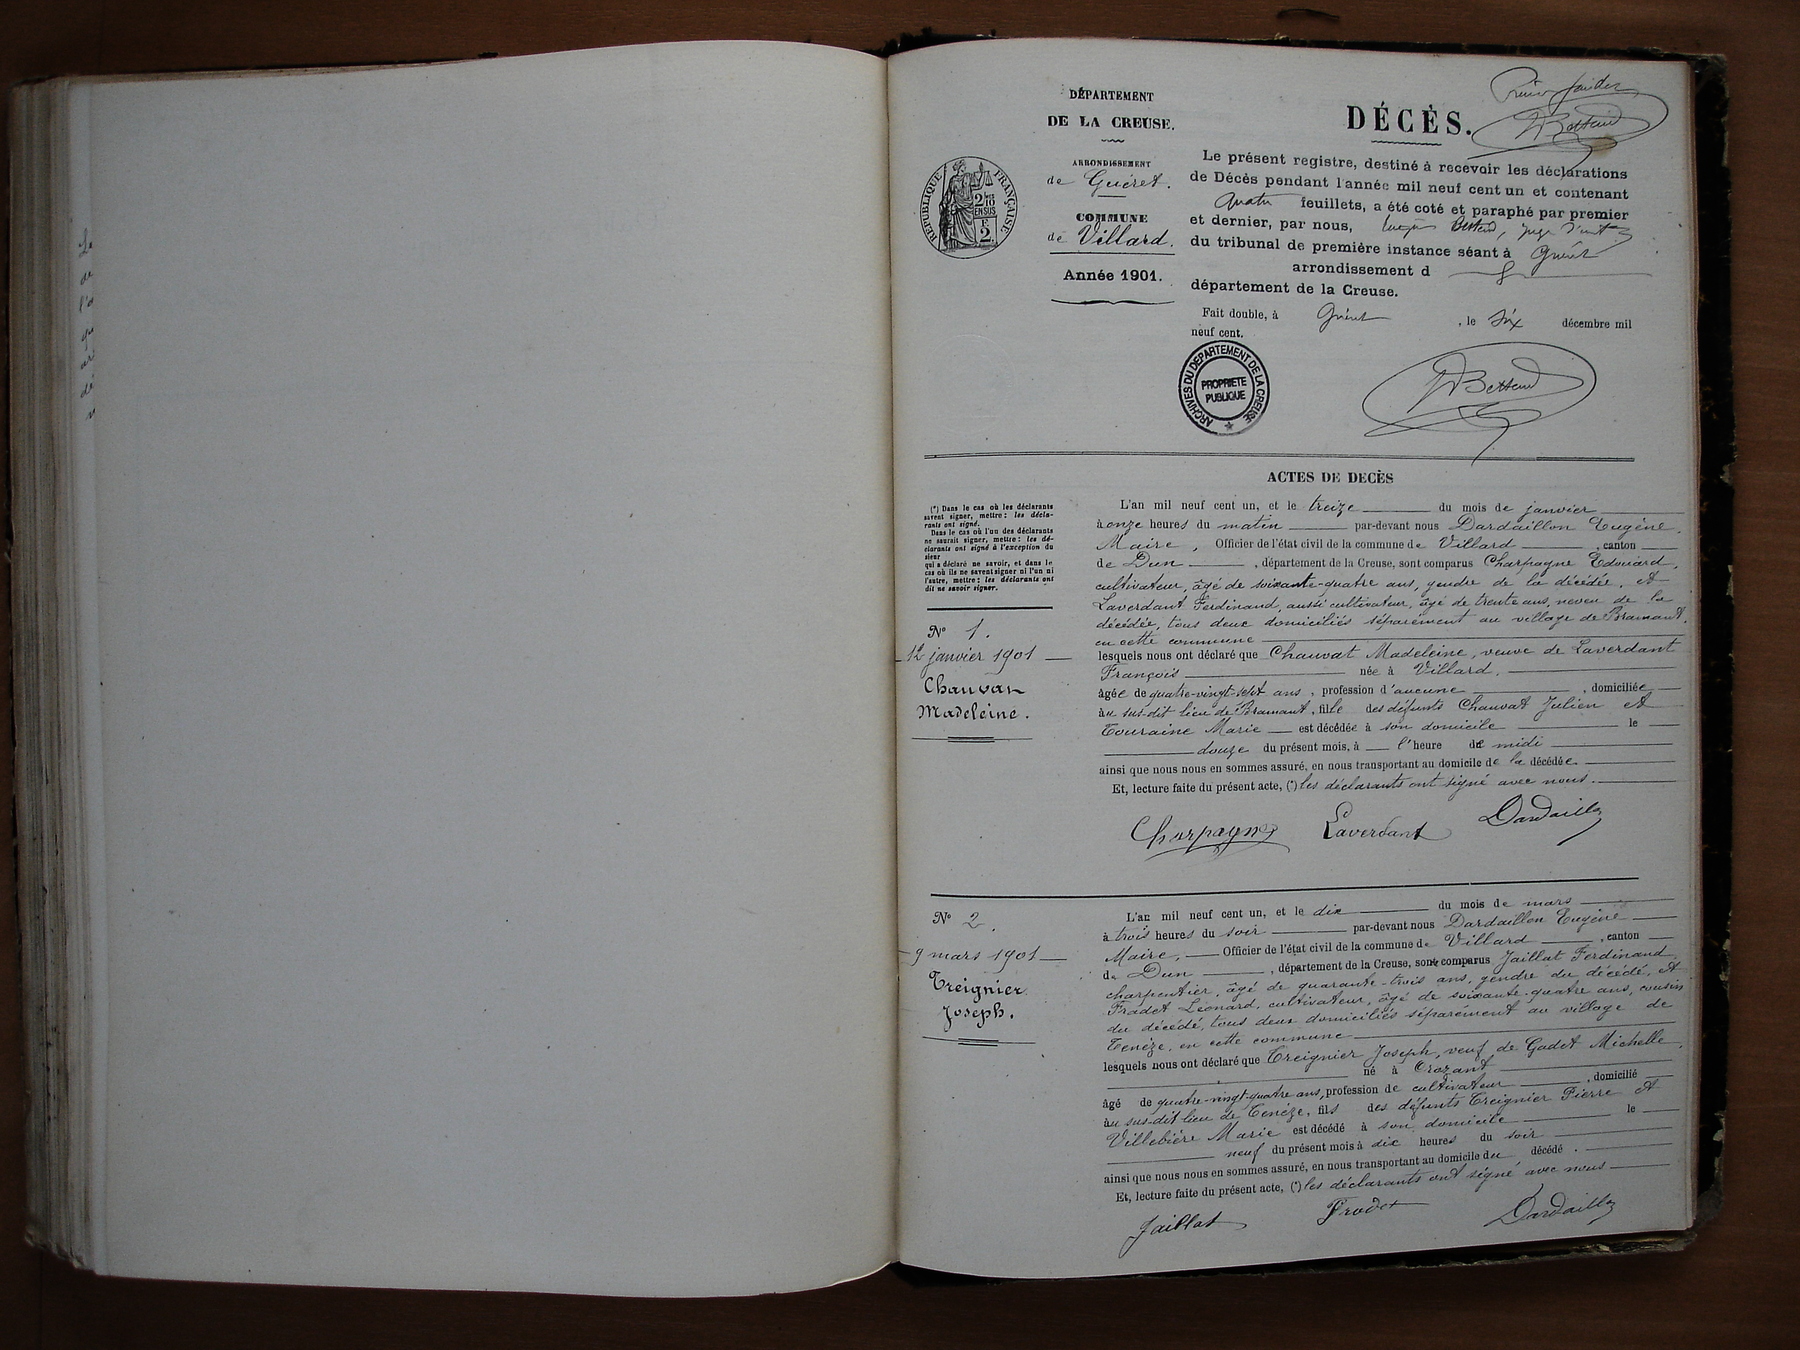 Le
de
l'a
DÉPARTEMENT
DE LA CREUSE.
ARRONDISSEMENT
de Guéret.
COMMUNE
de Villard.
Année 1901.
RÉPUBLIQUE FRANÇAISE
2/10
EN SUS
2.
Premier feuillet
Bettend
DÉCÈS.
Le présent registre, destiné à recevoir les déclarations
de Décès pendant l'année mil neuf cent un et contenant
quatre feuillets, a été coté et paraphé par premier
et dernier, par nous,
du tribunal de première instance séant à Guéret
arrondissement d
département de la Creuse.
Fait double, à Guéret, le Six décembre mil
neuf cent.
ARCHIVES DU DEPARTEMENT DE LA CREUSE
PROPRIETE
PUBLIQUE
ACTES DE DECÈS
(*) Dans le cas où les déclarants
savent signer, mettre : les décla-
rants ont signé.
Dans le cas où l'un des déclarants
ne saurait signer, mettre : les dé-
clarants ont signé à l'exception du
sieur
qui a déclaré ne savoir, et dans le
cas où ils ne savent signer ni l'un ni
l'autre, mettre : les déclarants ont
dit ne savoir signer.
N° 1.
12 janvier 1901
Chauvat
Madeleine.
L'an mil neuf cent un, et le treize du mois de janvier
à onze heures du matin par-devant nous Dardaillon Eugène,
Maire, Officier de l'état civil de la commune de Villard, canton
de Dun, département de la Creuse, sont comparus Charpagne Edouard,
cultivateur, âgé de soixante-quatre ans, gendre de la décédée, et
Laverdant Ferdinand, aussi cultivateur, âgé de trente ans, neveu de la
décédée, tous deux domiciliés séparément au village de Bramant,
en cette commune
lesquels nous ont déclaré que Chauvat Madeleine, veuve de Laverdant
François née à Villard,
âgée de quatre-vingt-sept ans, profession d'aucune, domiciliée
au sus-dit lieu de Bramant, fille des défunts Chauvat Julien et
Touraine Marie est décédée à son domicile le
douze du présent mois, à l'heure de midi
ainsi que nous nous en sommes assuré, en nous transportant au domicile de la décédée.
Et, lecture faite du présent acte, (*) les déclarants ont signé avec nous.
Charpagne Laverdant Dardaillon
N° 2.
9 mars 1901
Treignier
Joseph.
L'an mil neuf cent un, et le dix du mois de mars
à trois heures du soir par-devant nous Dardaillon Eugène
Maire, Officier de l'état civil de la commune de Villard, canton
de Dun, département de la Creuse, sont comparus Jaillat Ferdinand,
charpentier, âgé de quarante-trois ans, gendre du décédé, et
Fradet Léonard, cultivateur, âgé de soixante-quatre ans, cousin
du décédé, tous deux domiciliés séparément au village de
Tenèze, en cette commune
lesquels nous ont déclaré que Treignier Joseph, veuf de Gadet Michelle,
né à Crozant
âgé de quatre-vingt-quatre ans, profession de cultivateur, domicilié
au sus-dit lieu de Tenèze, fils des défunts Treignier Pierre et
Villebière Marie est décédé à son domicile le
neuf du présent mois à dix heures du soir
ainsi que nous nous en sommes assuré, en nous transportant au domicile du décédé.
Et, lecture faite du présent acte, (*) les déclarants ont signé avec nous
Jaillat Fradet Dardaillon